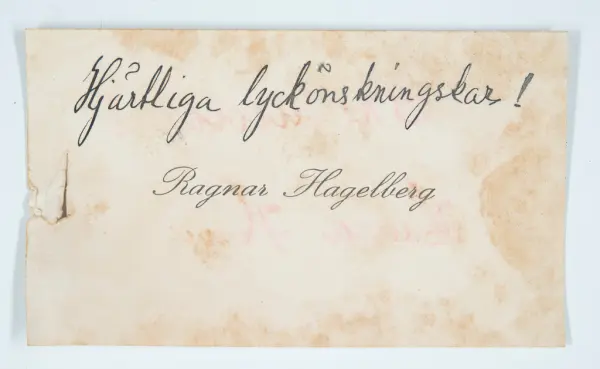 Hjärtliga lyckönskningskar!
Ragnar Hagelberg